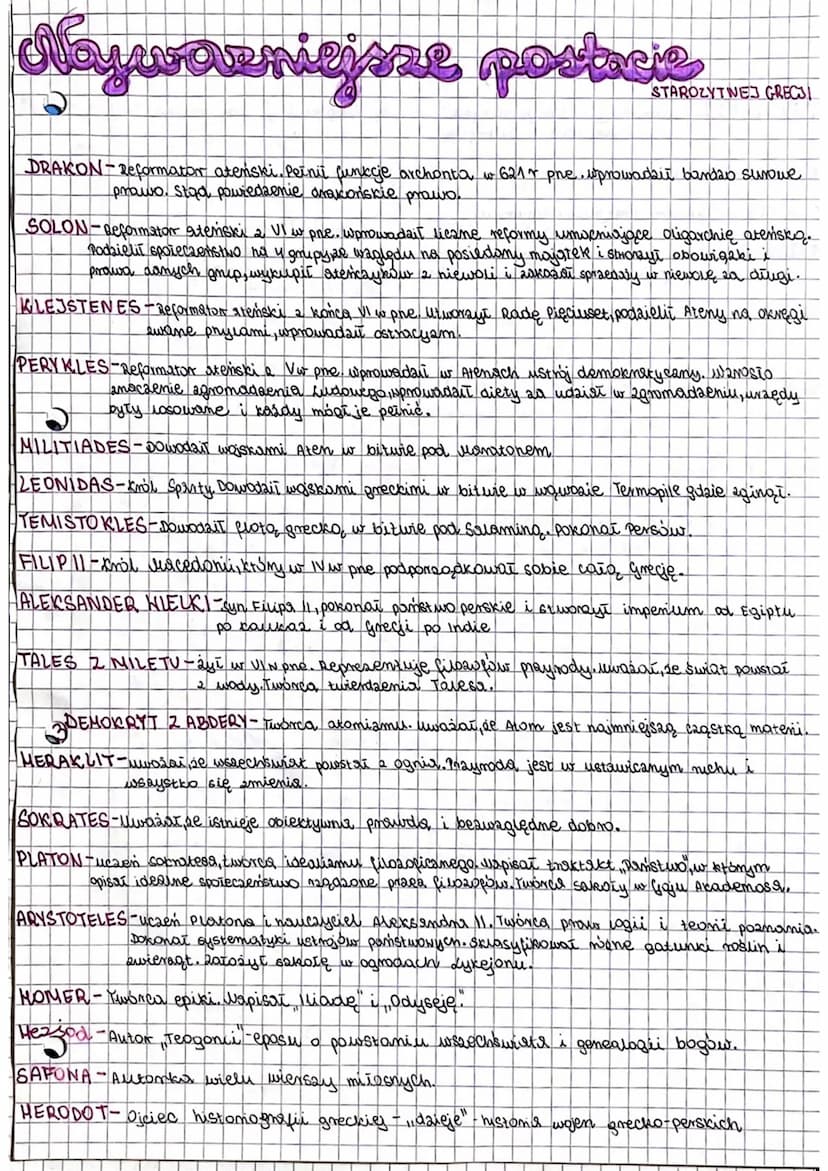 Najważniejsze postacie
STAROŻYTNEJ GRECJI
DRAKON-Reformator ateński. Pełnił funkcje archonta w 621 r pne. wprowadził bardzo surowe
prawo. Stąd powiedzenie drakońskie prawo.
SOLON-Reformator ateński z VI w pne. wprowadził liczne reformy umacniające oligarchię ateńską.
Podzielił społeczeństwo na 4 grupy ze względu na posiadany majątek i stworzył obowiązki i
prawa danych grup, wykupił ateńczyków z niewoli i zakazał sprzedaży w niewolę za długi.
KLEJSTENES-Reformator ateński z końca VI w pne. Utworzył Radę Pięciuset, podzielił Ateny na okręgi
zwane prytami, wprowadził ostracyzm.
PERYKLES-Reformator ateński z V w pne. wprowadził w Atenach ustrój demokratyczny. Wzrosło
znaczenie zgromadzenia Ludowego, wprowadził diety za udział w zgromadzeniu, urzędy
były losowane i każdy mógł je pełnić.
MILITIADES-Dowodził wojskami Aten w bitwie pod Maratonem
LEONIDAS-Król Sparty. Dowodził wojskami greckimi w bitwie w wąwozie Termopile gdzie zginął.
TEMISTOKLES-Dowodził flotą grecką w bitwie pod Salaminą. Pokonał Persów.
FILIP II-Król Macedonii, który w IV w pne podporządkował sobie całą Grecję.
ALEKSANDER WIELKI-Syn Filipa II, pokonał państwo perskie i stworzył imperium od Egiptu
po kaukaz i od Grecji po Indie
TALES Z MILETU-żył w VI w pne. Reprezentuje filozofów przyrody. Uważał, że świat powstał
z wody. Twórca twierdzenia Talesa.
DEMOKRYT Z ABDERY-Twórca atomizmu. Uważał, że Atom jest najmniejszą cząstką materii.
HERAKLIT-uważał, że wszechświat powstał z ognia. Przyroda jest w ustawicznym ruchu i
wszystko się zmienia.
SOKRATES-Uważał, że istnieje obiektywna prawda i bezwzględne dobro.
PLATON-uczeń sokratesa, twórca idealizmu filozoficznego. Napisał traktat „Państwo", w którym
opisał idealne społeczeństwo rządzone przez filozofów. Twórca szkoły w Gaju Akademosa.
ARYSTOTELES-uczeń Platona i nauczyciel Aleksandra II. Twórca praw logii i teorii poznania.
Dokonał systematyki ustrojów państwowych. Sklasyfikował różne gatunki roślin i
zwierząt. Założył szkołę w ogrodach Lykejonu.
HOMER-Twórca epiki. Napisał „Iliadę" i „Odyseję".
Hezjod-Autor „Teogonii"-eposu o powstaniu wszechświata i genealogii bogów.
SAFONA-Autorka wielu wierszy miłosnych.
HERODOT-Ojciec historiografii greckiej-„dzieje"-historia wojen grecko-perskich